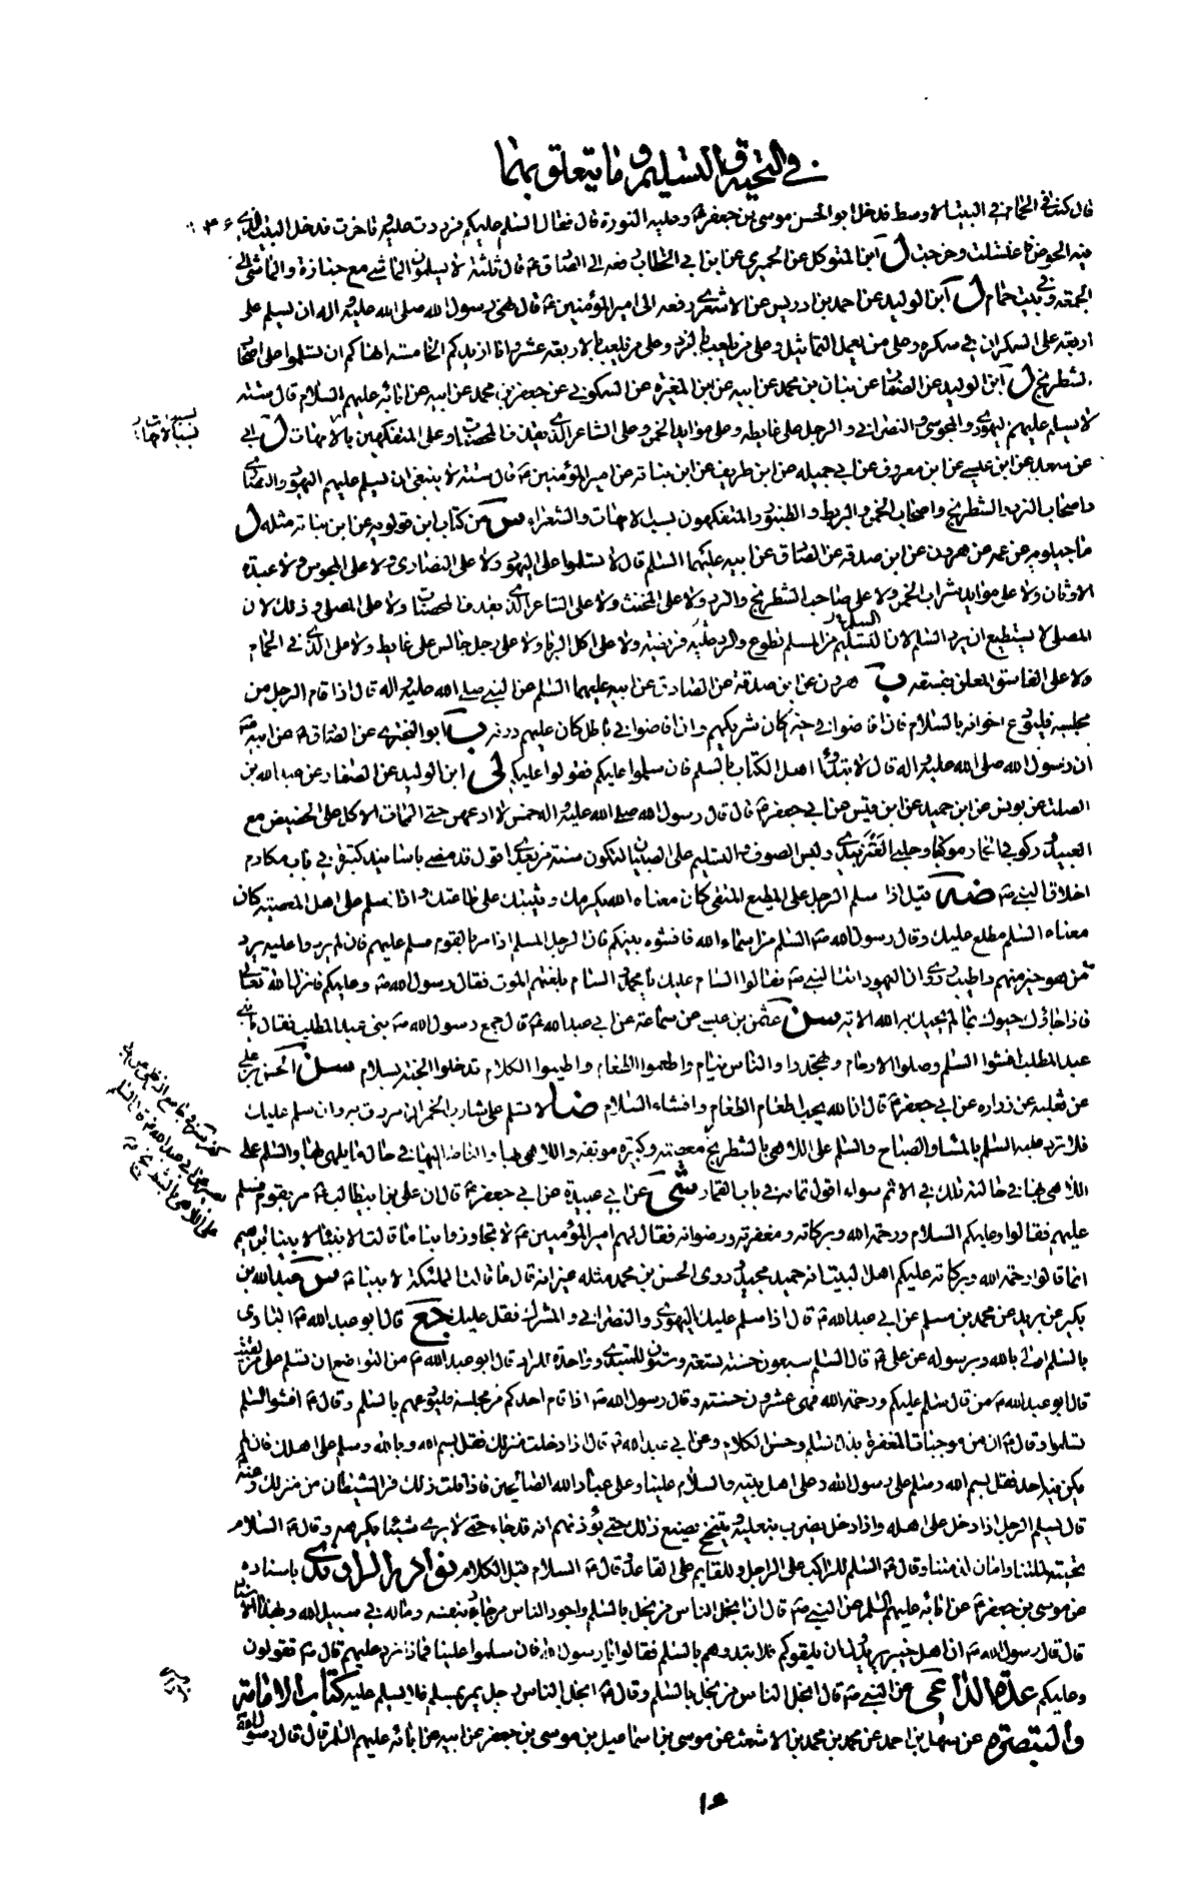 في التحية والتسليم وما يتعلق بهما
قال كنت في الحمام في البيت الاوسط فدخل ابو الحسن موسى بن جعفر ع وعليه النورة قال فقال السلم عليكم فرددت عليه وتاخرت فدخل البيت الذى
فيه الحوض فاغتسلت وخرجت ل ابن المتوكل عن الحميرى عن ابن ابي الخطاب رفعه الى الصادق ع قال ثلثة لا يسلمون الماشي مع جنازة والماشي الى
الجمعة وفي بيت حمام ل ابن الوليد عن احمد بن ادريس عن الاشعرى رفعه الى امير المؤمنين ع قال نهى رسول الله صلى الله عليه واله ان يسلم على
اربعة على السكران في سكره وعلى من يعمل التماثيل وعلى من يلعب بالنرد وعلى من يلعب بالاربعة عشر وانا ازيدكم الخامسة انهاكم ان تسلموا على اصحاب
الشطرنج ل ابن الوليد عن الصفار عن بنان بن محمد عن ابيه عن ابن المغيرة عن السكوني عن جعفر بن محمد عن ابيه عن ابائه عليهم السلام قال ستة
لا يسلم عليهم اليهودى والمجوسى والنصراني والرجل على غايطه وعلى موايد الخمر وعلى الشاعر الذى يقذف المحصنات وعلى المتفكهين بالامهات ل ابي
عن سعد عن ابن عيسى عن ابن معروف عن ابي جميله عن ابن طريف عن ابن نباته عن امير المؤمنين ع قال ستة لا ينبغى ان يسلم عليهم اليهود والنصارى
واصحاب النرد والشطرنج واصحاب الخمر والبربط والطنبور والمتفكهون بسب الامهات والشعراء س من كتاب ابن قولويه عن ابن نباته مثله ل
ماجيلويه عن عمه عن هرون عن ابن صدقه عن الصادق عن ابيه عليهما السلم قال لا تسلموا على اليهود ولا على النصارى ولا على المجوس ولا عبدة
الاوثان ولا على موايد شراب الخمر ولا على صاحب الشطرنج والنرد ولا على المخنث ولا على الشاعر الذى يقذف المحصنات ولا على المصلى وذلك لان
المصلى لا يستطيع ان يرد السلم لان التسليم من المسلم تطوع والرد عليه فريضة ولا على اكل الربا ولا على رجل جالس على غايط ولا على الذى في الحمام
ولا على الفاسق المعلن بفسقه ب هرون عن ابن صدقة عن الصادق عن ابيه عليهما السلم عن النبي صلى الله عليه واله قال اذا قام الرجل من
مجلسه فليودع اخوانه بالسلام فان افاضوا في خير كان شريكهم وان افاضوا في باطل كان عليهم دونه ب ابو البخترى عن الصادق ع عن ابيه ع
ان رسول الله صلى الله عليه واله قال لا تبتدؤا اهل الكتاب بالسلم فان سلموا عليكم فقولوا عليكم لى ابن الوليد عن الصفار عن عبد الله بن
الصلت عن يونس عن ابن حميد عن ابن قيس عن ابي جعفر ع قال قال رسول الله صلى الله عليه واله خمس لا ادعهن حتى الممات الاكل على الحضيض مع
العبيد وركوبي الحمار موكفا وحلبي العنز بيدى ولبس الصوف والتسليم على الصبيان لتكون سنة من بعدى اقول قد مضى باسانيد كثيرة في باب مكارم
اخلاق النبي ص ضه قيل اذا سلم الرجل على المطيع المتقى كان معناه الله يكرمك ويثيبك على طاعتك واذا سلم على اهل المعصية كان
معناه السلم مطلع عليك وقال رسول الله ص السلم من اسماء الله فافشوه بينكم فان الرجل المسلم اذا مر بالقوم فسلم عليهم فان لم يردوا عليه يرد
من هو خير منهم واطيب وروى ان اليهود اتت النبي ص فقالوا السام عليك يا محمد والسام بلغتهم الموت فقال رسول الله ص وعليكم فانزل الله تعالى
فاذا جاؤك حيوك بما لم يحيك به الله الاية سن عثمن بن عيسى عن سماعة عن ابي عبد الله ع قال جمع رسول الله ص بني عبد المطلب فقال يا بني
عبد المطلب افشوا السلم وصلوا الارحام وتهجدوا والناس نيام واطعموا الطعام واطيبوا الكلام تدخلوا الجنة بسلام سن الحسن بن على
عن ثعلبه عن زراره عن ابي جعفر ع قال ان الله يحب اطعام الطعام وافشاء السلام ضا لا تسلم على شارب الخمر ان مررت به وان سلم عليك
فلا ترد عليه السلم بالمساء والصباح والسلم على اللاهى بالشطرنج معصية وكبيرة موبقة واللاهى بها والناظر اليها في حال ما يلهى بها والسلم على
اللاهى بها في حالته تلك في الاثم سواء اقول تمامه في باب القمار شى عن ابي عبيدة عن ابي جعفر ع قال ان على بن ابيطالب ع مر بقوم فسلم
عليهم فقالوا وعليكم السلام ورحمة الله وبركاته ومغفرته ورضوانه فقال لهم امير المؤمنين ع لا تجاوزوا بنا ما قالت الانبياء لابينا ابرهيم
انما قالوا رحمة الله وبركاته عليكم اهل البيت انه حميد مجيد وروى الحسن بن محمد مثله غير انه قال ما قالت الملئكة لابينا ع س عبد الله بن
بكير عن بريد عن محمد بن مسلم عن ابي عبد الله ع قال اذا سلم عليك اليهودى والنصراني والمشرك فقل عليك جع قال ابو عبد الله ع البادى
بالسلم اولى بالله وبرسوله عن على ع قال السلم سبعون حسنة تسعة وستون للمبتدى وواحدة للراد قال ابو عبد الله ع من التواضع ان تسلم على من لقيت
قال ابو عبد الله ع من قال سلم عليكم ورحمة الله فهى عشرون حسنة وقال رسول الله ص اذا قام احدكم من مجلسه فليودعهم بالسلم وقال ع افشوا السلم
تسلموا وقال ع ان من موجبات المغفرة بذل السلم وحسن الكلام وعن ابي عبد الله ع قال اذا دخلت منزلك فقل بسم الله وبالله وسلم على اهلك فان لم
يكن فيه احد فقل بسم الله وسلم على رسول الله وعلى اهل بيته والسلام علينا وعلى عباد الله الصالحين فاذا قلت ذلك فر الشيطان من منزلك وعنه ع
قال يسلم الرجل اذا دخل على اهله واذا دخل يضرب بنعليه ويتنحنح يصنع ذلك حتى يؤذنهم انه قد جاء حتى لا يرى شيئا يكرهه وقال ع السلام
تحية لملتنا وامان لذمتنا وقال ع السلم للراكب على الراجل وللقايم على القاعد وقال ع السلام قبل الكلام نوادر الراوندى باسناده
عن موسى بن جعفر ع عن ابائه عليهم السلم عن النبي ص قال ان ابخل الناس من بخل بالسلم واجود الناس من جاد بنفسه وماله في سبيل الله وبهذا الاسناد
قال قال رسول الله ص ان اهل خيبر يريدون ان يلقوكم فلا تبدوهم بالسلم فقالوا يا رسول الله فان سلموا علينا فماذا نرد عليهم قال ص تقولون
وعليكم عدة الداعى عن النبي ص قال ابخل الناس من بخل بالسلم وقال ع ابخل الناس رجل يمر بمسلم فلا يسلم عليه كتاب الامامة
والتبصرة عن سهل بن احمد عن محمد بن محمد بن الاشعث عن موسى بن اسماعيل بن موسى بن جعفر عن ابيه عن ابائه عليهم السلم قال قال رسول الله ص